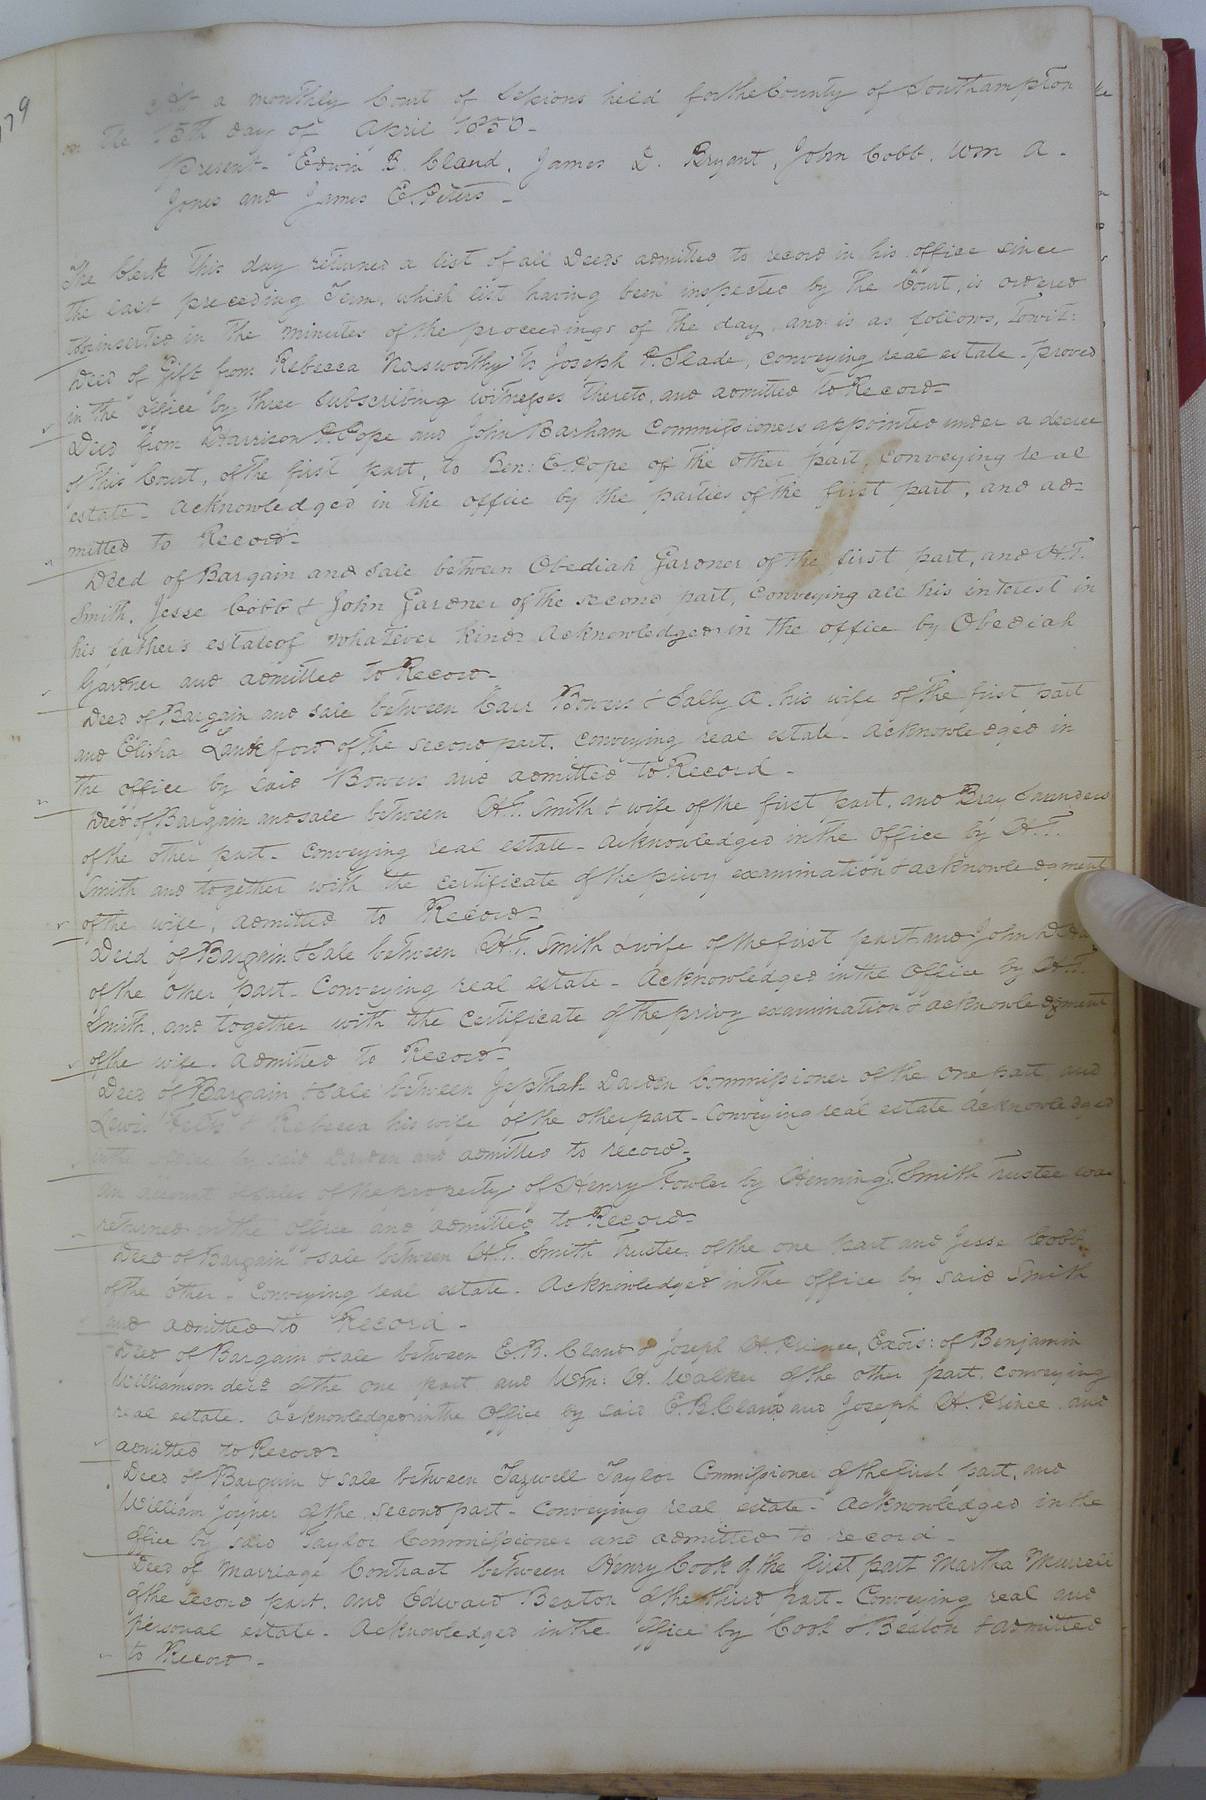 179
At a monthly Court of Sessions held for the County of Southampton
on the 15th day of April 1850 -
Present - Edwin B. Claud, James D. Bryant, John Cobb, Wm A.
Jones and James E. Peters -
The Clerk this day returned a list of all Deeds admitted to record in his office since
the last preceeding Term, which list having been inspected by the Court, is ordered
to be inserted in the minutes of the proceedings of the day, and is as follows, Towit:
Deed of Gift from Rebecca Nasworthy to Joseph P. Slade, conveying real estate - proved
in the office by three subscribing witnesses thereto, and admitted to Record -
Deed from Harrison P. Pope and John Barham Commissioners appointed under a decree
of this Court, of the first part, to Ben: E. Pope of the other part, conveying real
estate - Acknowledged in the office by the parties of the first part, and ad-
mitted to Record -
Deed of Bargain and sale between Obediah Gardner of the first part, and H.T.
Smith, Jesse Cobb & John Gardner of the second part, conveying all his interest in
his father's estate of whatever kind Acknowledged in the office by Obediah
Gardner and admitted to Record -
Deed of Bargain and sale between Carr Bowers & Sally A. his wife of the first part
and Elisha Lankford of the second part. conveying real estate - Acknowledged in
the office by said Bowers and admitted to Record -
Deed of Bargain and sale between H.T. Smith & wife of the first part, and Bray Saunders
of the other part - conveying real estate - Acknowledged in the office by H.T.
Smith and together with the certificate of the privy examination & acknowledgment
of the wife, admitted to Record -
Deed of Bargain & Sale between H.T. Smith & wife of the first part and John D.
of the other part - Conveying real estate - Acknowledged in the Office by H.T.
Smith, and together with the Certificate of the privy examination & acknowledgment
of the wife. admitted to Record -
Deed of Bargain & sale between Jepthah Darden Commissioner of the one part and
Lewis Felts & Rebecca his wife of the other part - Conveying real estate Acknowledged
in the office by said Darden and admitted to record -
An account of sales of the property of Henry Fowler by Henning T. Smith Trustee was
returned in the office and admitted to Record -
Deed of Bargain & sale between H.T. Smith Trustee of the one part and Jesse Cobb
of the other - Conveying real estate. Acknowledged in the office by said Smith
and admitted to Record -
Deed of Bargain & sale between E.B. Claud & Joseph H. Prince, Exors: of Benjamin
Williamson decd of the one part and Wm: H. Walker of the other part, conveying
real estate. Acknowledged in the Office by said E.B. Claud and Joseph H. Prince and
admitted to Record -
Deed of Bargain & sale between Tazwell Taylor Commissioner of the first part, and
William Joyner of the second part - Conveying real estate - Acknowledged in the
office by said Taylor Commissioner and admitted to record -
Deed of Marriage Contract between Henry Cook of the first part Martha Murrell
of the second part, and Edward Beaton of the third part - Conveying real and
personal estate - Acknowledged in the office by Cook & Beaton & admitted
to Record -